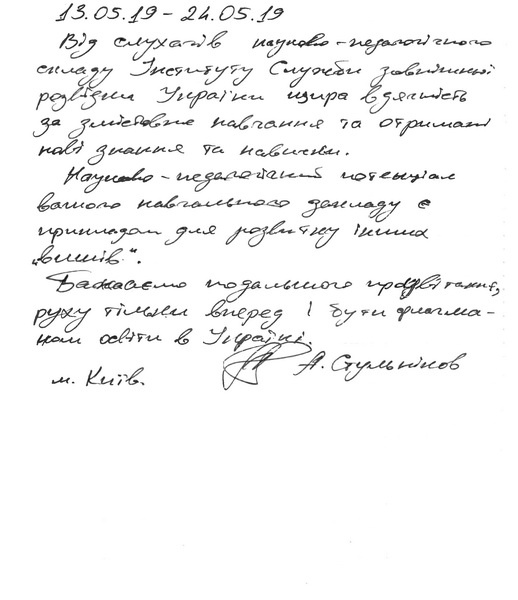 13.05.19 – 24.05.19
Від слухачів науково-педагогічного
складу Інституту Служби зовнішньої
розвідки України щира вдячність
за змістовне навчання та отримані
нові знання та навички.
Науково-педагогічний потенціал
вашого навчального закладу є
прикладом для розвитку інших
„вишів“.
Бажаємо подальшого процвітання,
руху тільки вперед і бути флагма-
ном освіти в Україні.
А. Стульніков
м. Київ.